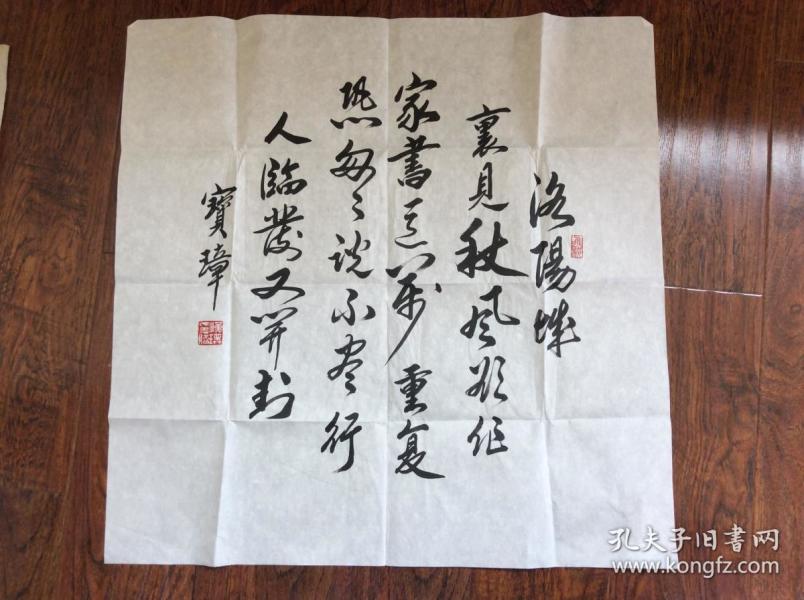 洛陽城
裏見秋風欲作
家書意萬重復
恐匆〻說不盡行
人臨發又開封
寶璋
孔夫子旧書网
www.kongfz.com